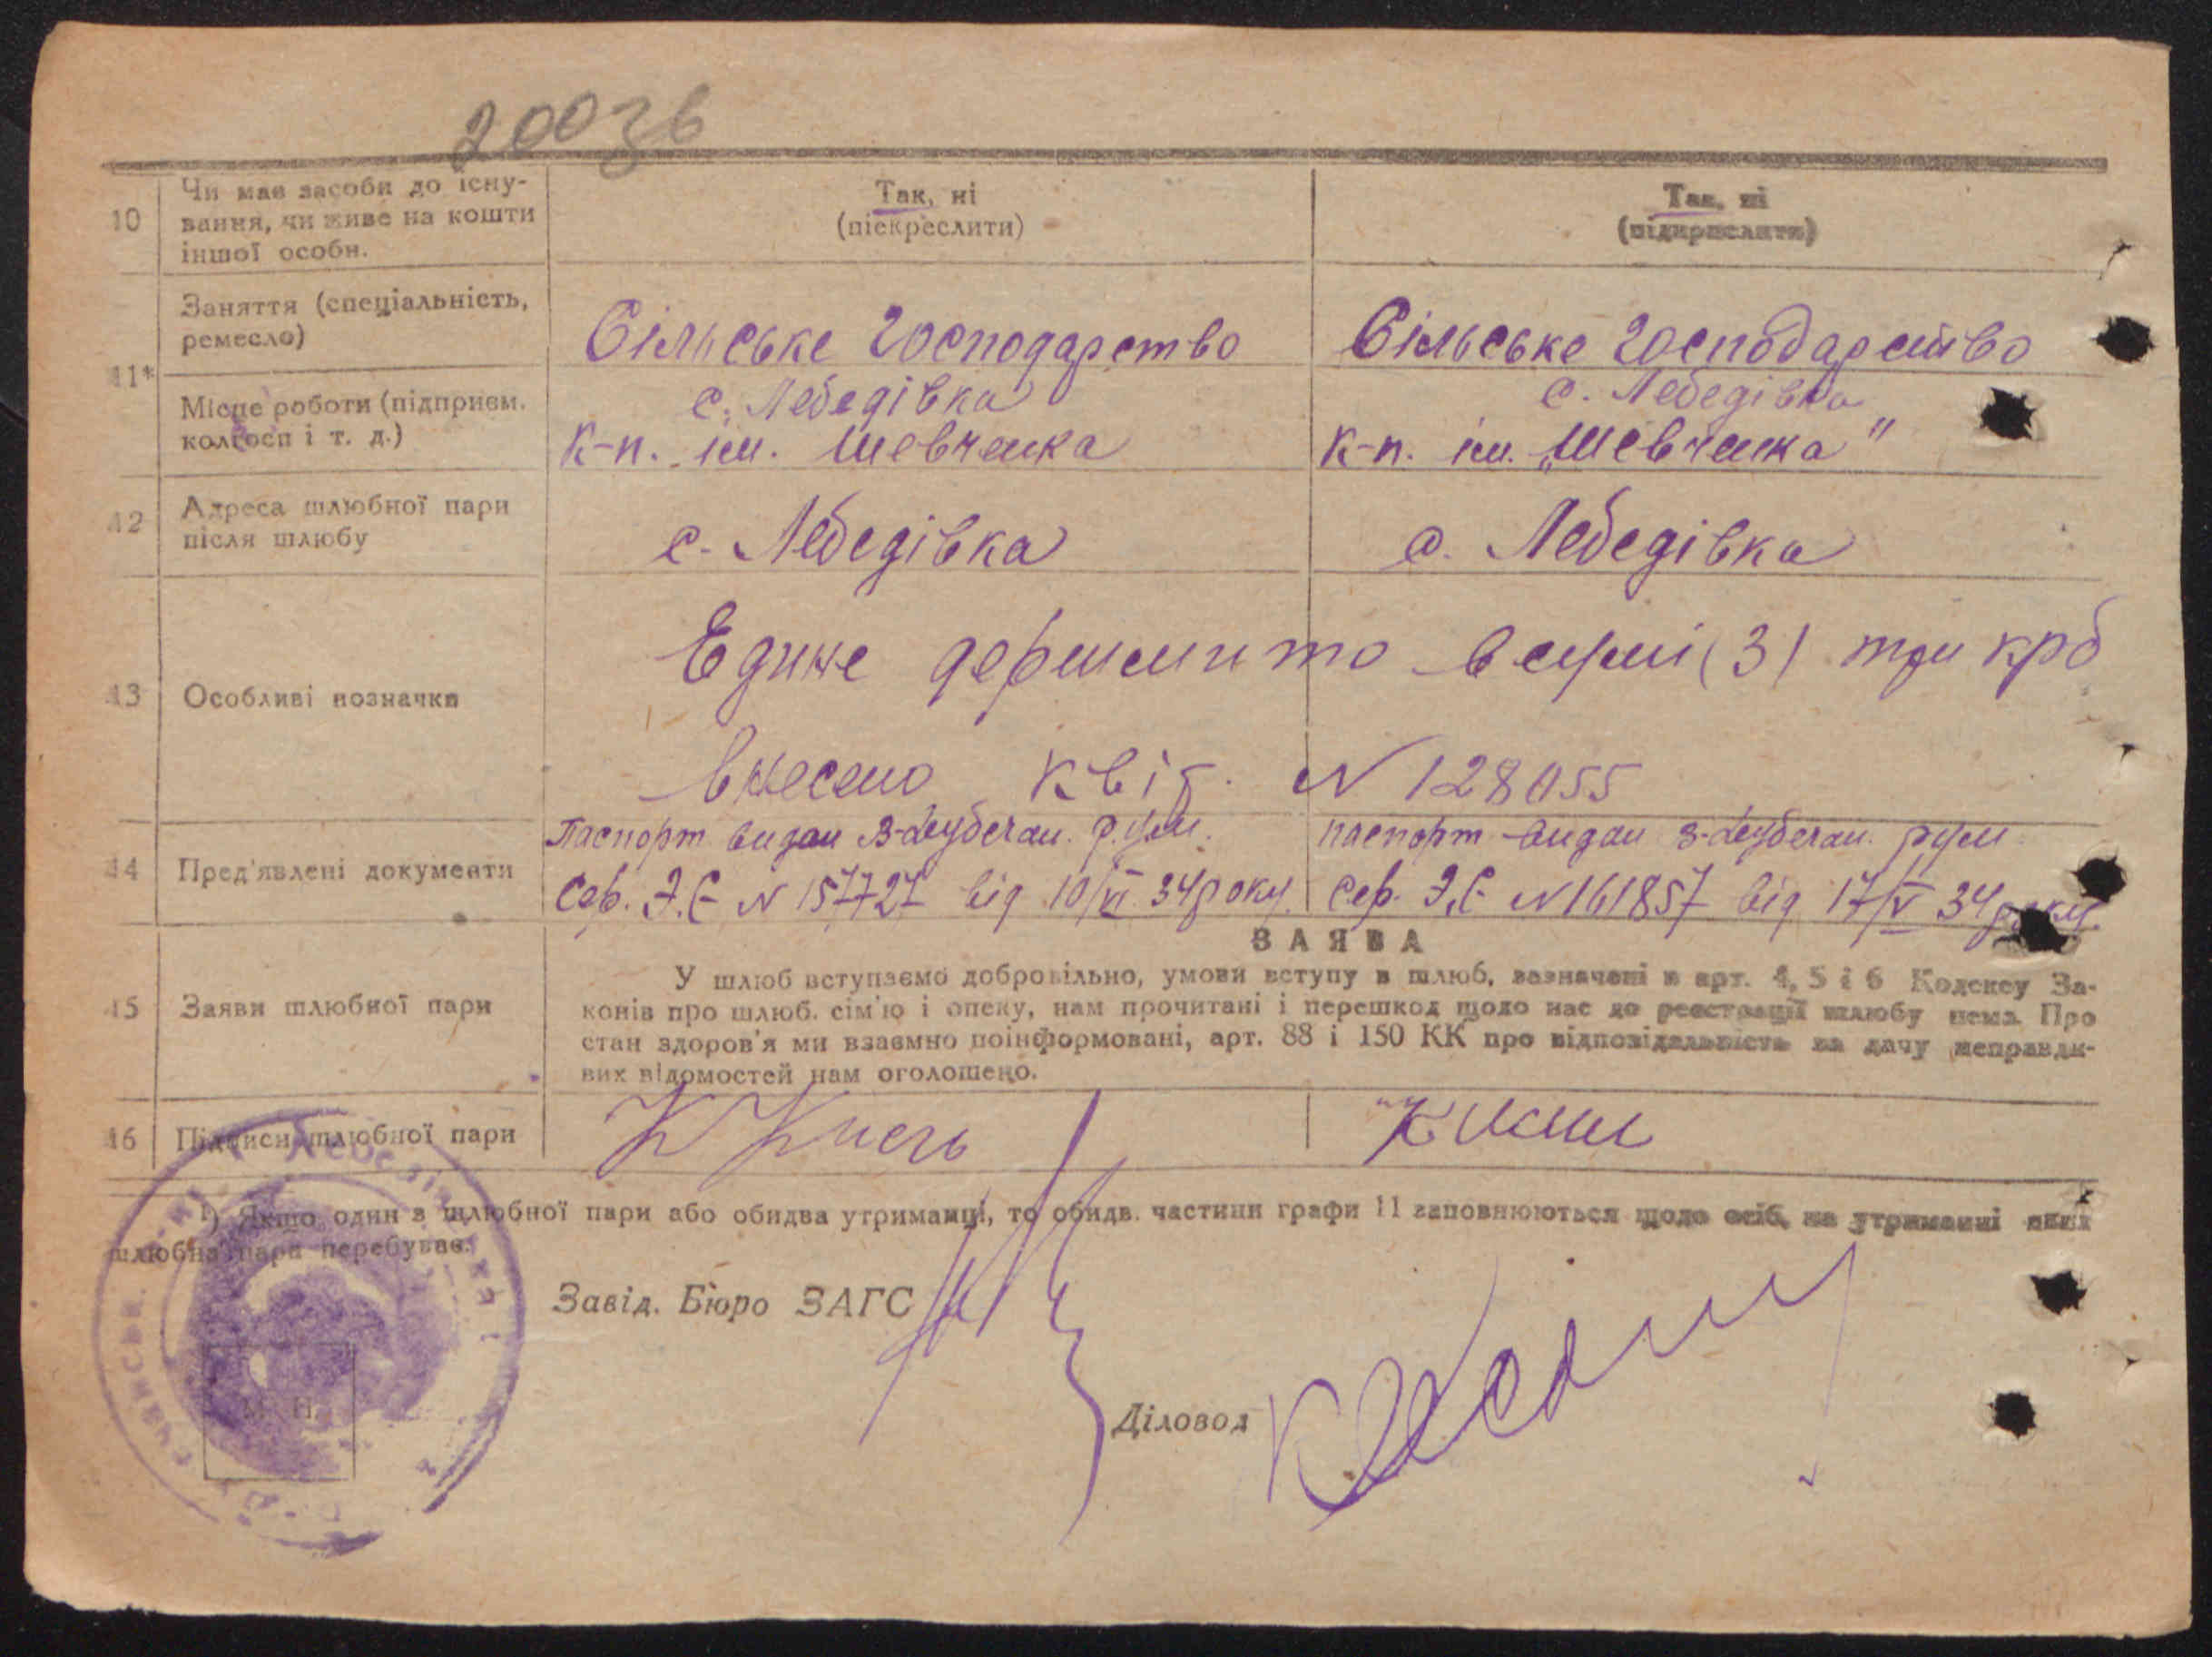 20036
10 Чи має засоби до існу- Так, ні Так, ні
вання, чи живе на кошти (піскреслити) (підкреслити)
іншої особи.
Заняття (спеціальність,
ремесло) Сільське господарство Сільське господарство
11*
Місце роботи (підприєм. с. Лебедівка с. Лебедівка
колгосп і т. д.) к-п. ім. Шевченка к-п. ім. „Шевченка"
12 Адреса шлюбної пари
після шлюбу с. Лебедівка с. Лебедівка
Едине в сумі (3) три крб
13 Особливі позначки
внесено квіт. N 128055
Паспорт видан р.уем. паспорт видан руем
14 Пред'явлені документи
Сер. Э.Є N 157727 від 10/VI 34 року. Сер. Э.Є N 161857 від 17/V 34 року.
ЗАЯВА
У шлюб вступаємо добровільно, умови вступу в шлюб, зазначені в арт. 4, 5 і 6 Кодексу За-
15 Заяви шлюбної пари конів про шлюб. сім'ю і опеку, нам прочитані і перешкод щодо нас до реєстрації шлюбу нема. Про
стан здоров'я ми взаємно поінформовані, арт. 88 і 150 КК про відповідальність за дачу неправди-
вих відомостей нам оголошено.
16 Підписи шлюбної пари
¹) Якщо один з шлюбної пари або обидва утриманці, то обидв. частини графи 11 заповнюються щодо осіб, на утриманні яких
шлюбна пара перебуває.
Завід. Бюро ЗАГС
М. П.
Діловод